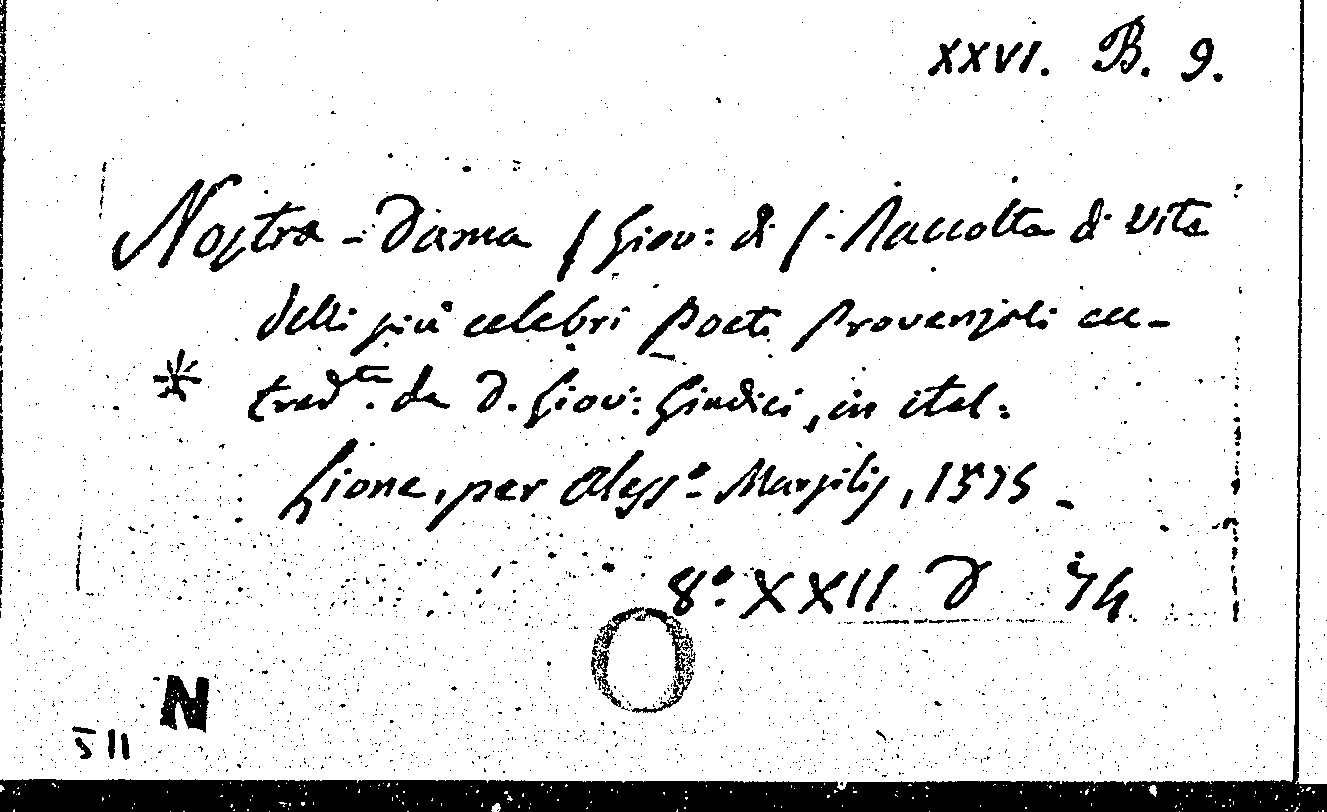 XXVI. B. 9.
Nostra-Dama / Giov: di /. Raccolta di vite
delli più celebri Poeti Provenzali ecc-
* trad.ta da D. Giov: Giudici, in ital:
Lione, per Aless.o Marsilij, 1575 -
8.o XXII D 74
O
N
511